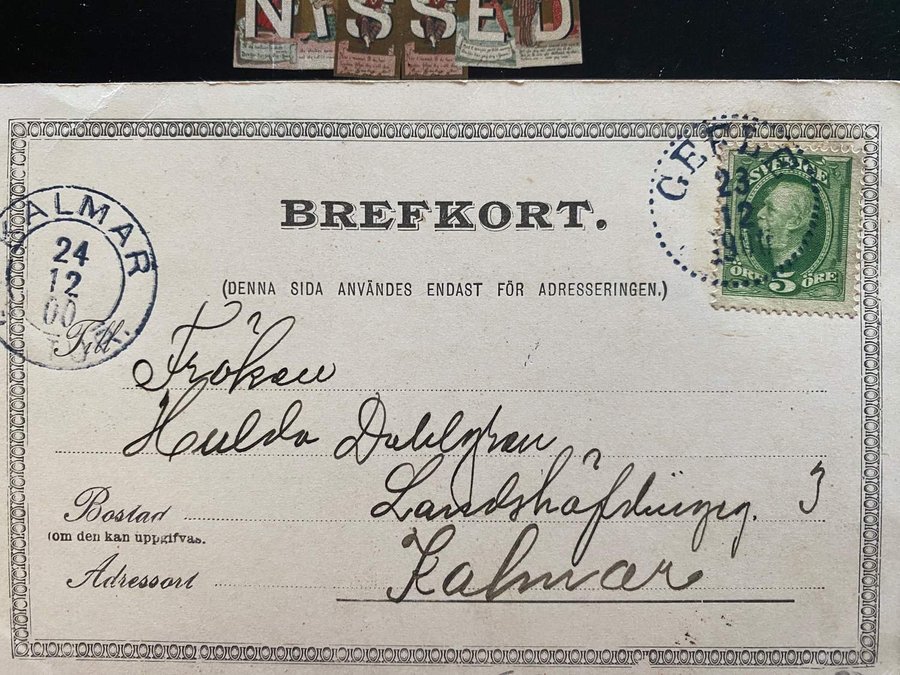 NISSED
BREFKORT.
(DENNA SIDA ANVÄNDES ENDAST FÖR ADRESSERINGEN.)
KALMAR
24
12
00
GEFLE
23
12
SVERIGE
ÖRE 5 ÖRE
Till
Fröken
Hulda Dahlgren
Landshöfdingeg. 3
Bostad
(om den kan uppgifvas.
Adressort
Kalmar